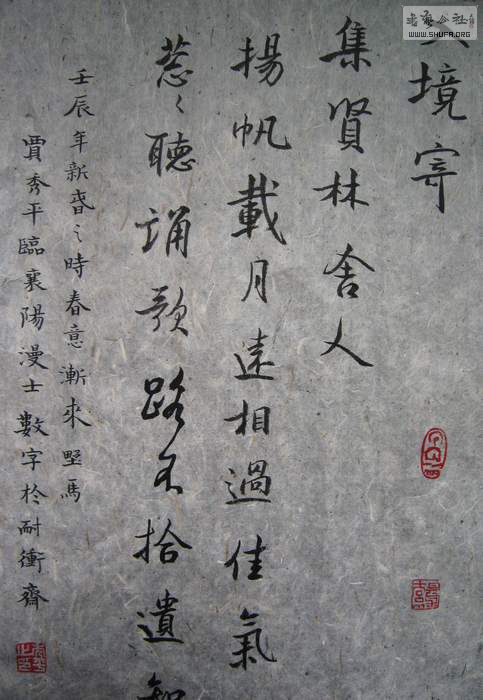 書藝公社
WWW.SHUFA.ORG
境寄
集賢林舍人
揚帆載月遠相過佳氣
葱〻聽誦歌路不拾遺知
壬辰年新旾之時春意漸來
賈秀平臨襄陽漫士數字於耐衝齋